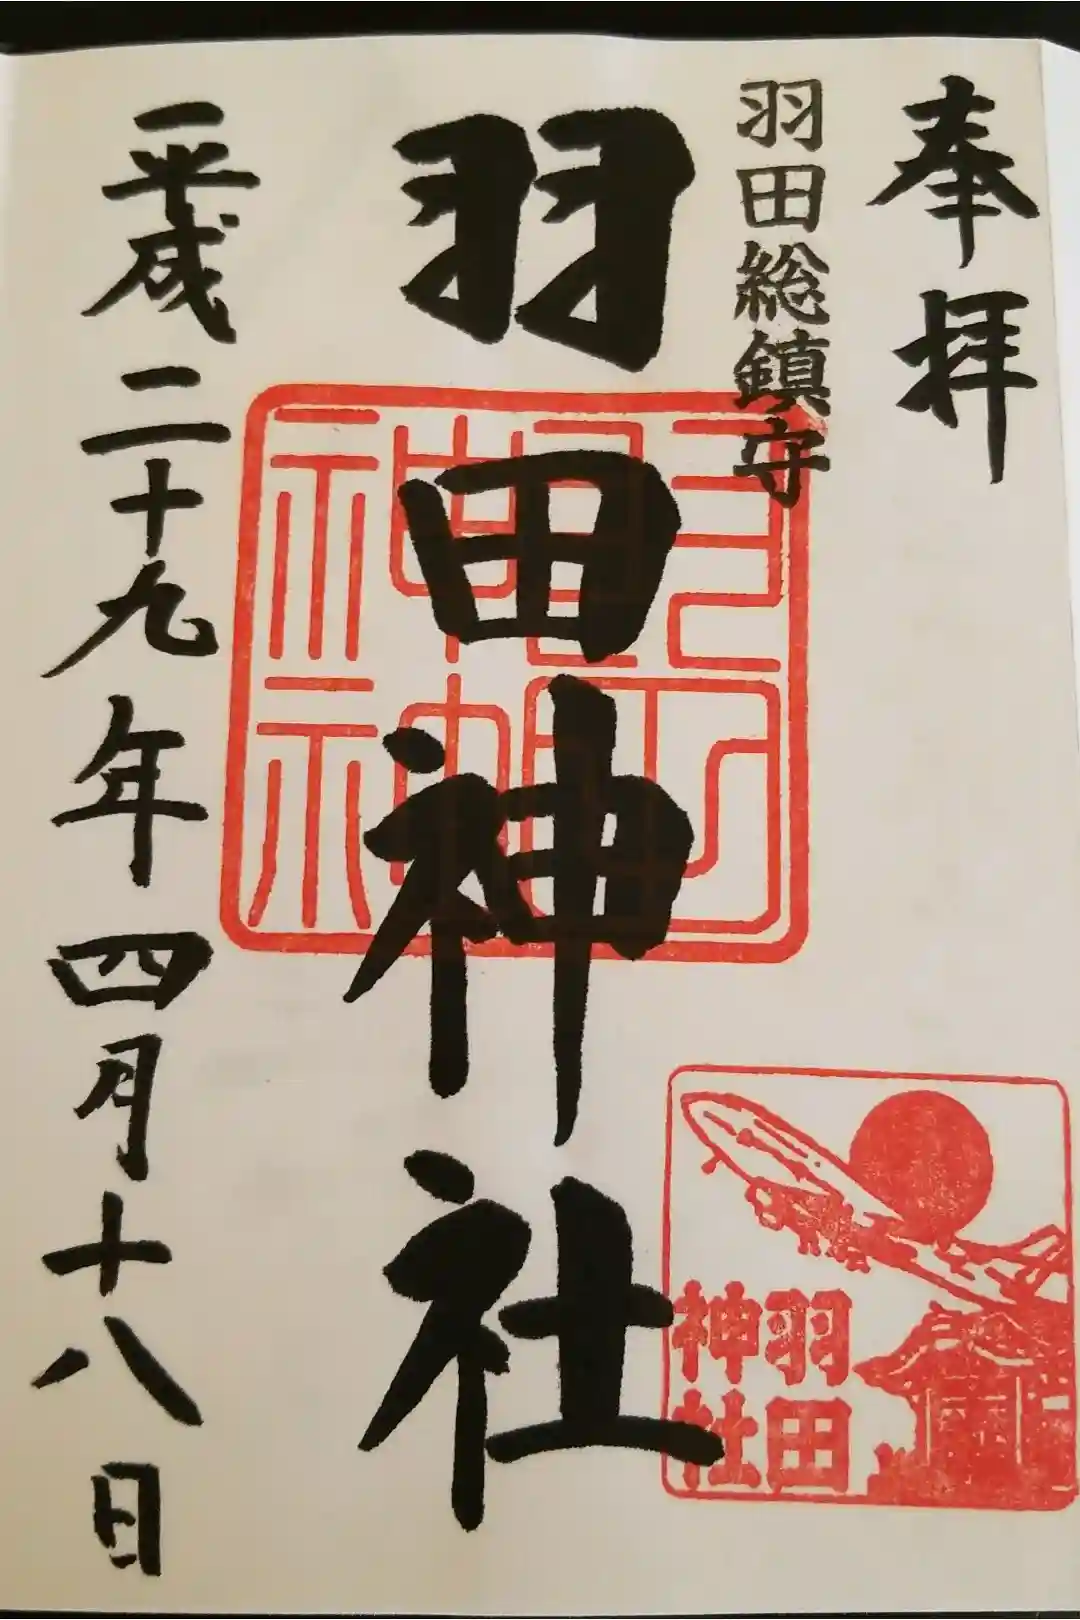 奉拝
羽田総鎮守
羽田神社
平成二十九年四月十八日
羽田
神社